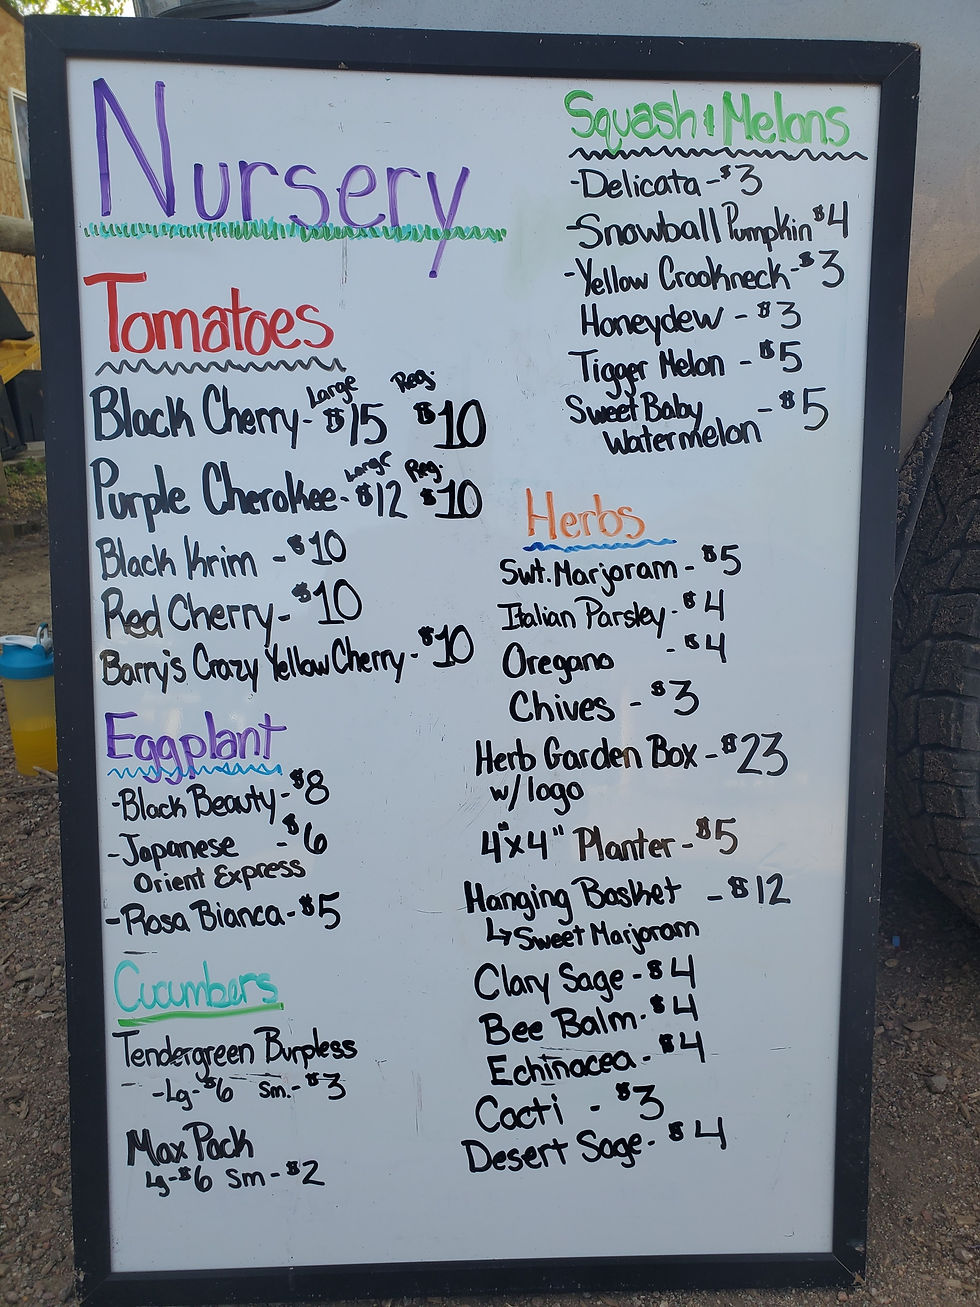 Nursery
Tomatoes
Large Reg.
Black Cherry - $15 $10
Large Reg.
Purple Cherokee - $12 $10
Black Krim - $10
Red Cherry - $10
Barry's Crazy Yellow Cherry - $10
Eggplant
-Black Beauty - $8
-Japanese - $6
Orient Express
-Rosa Bianca - $5
Cucumbers
Tendergreen Burpless
-Lg - $6 Sm. - $3
Max Pack
Lg - $6 Sm - $2
Squash & Melons
-Delicata - $3
-Snowball Pumpkin $4
-Yellow Crookneck - $3
Honeydew - $3
Tigger Melon - $5
Sweet Baby - $5
Watermelon
Herbs
Swt. Marjoram - $5
Italian Parsley - $4
Oregano - $4
Chives - $3
Herb Garden Box - $23
w/logo
4"x4" Planter - $5
Hanging Basket - $12
↳ Sweet Marjoram
Clary Sage - $4
Bee Balm - $4
Echinacea - $4
Cacti - $3
Desert Sage - $4